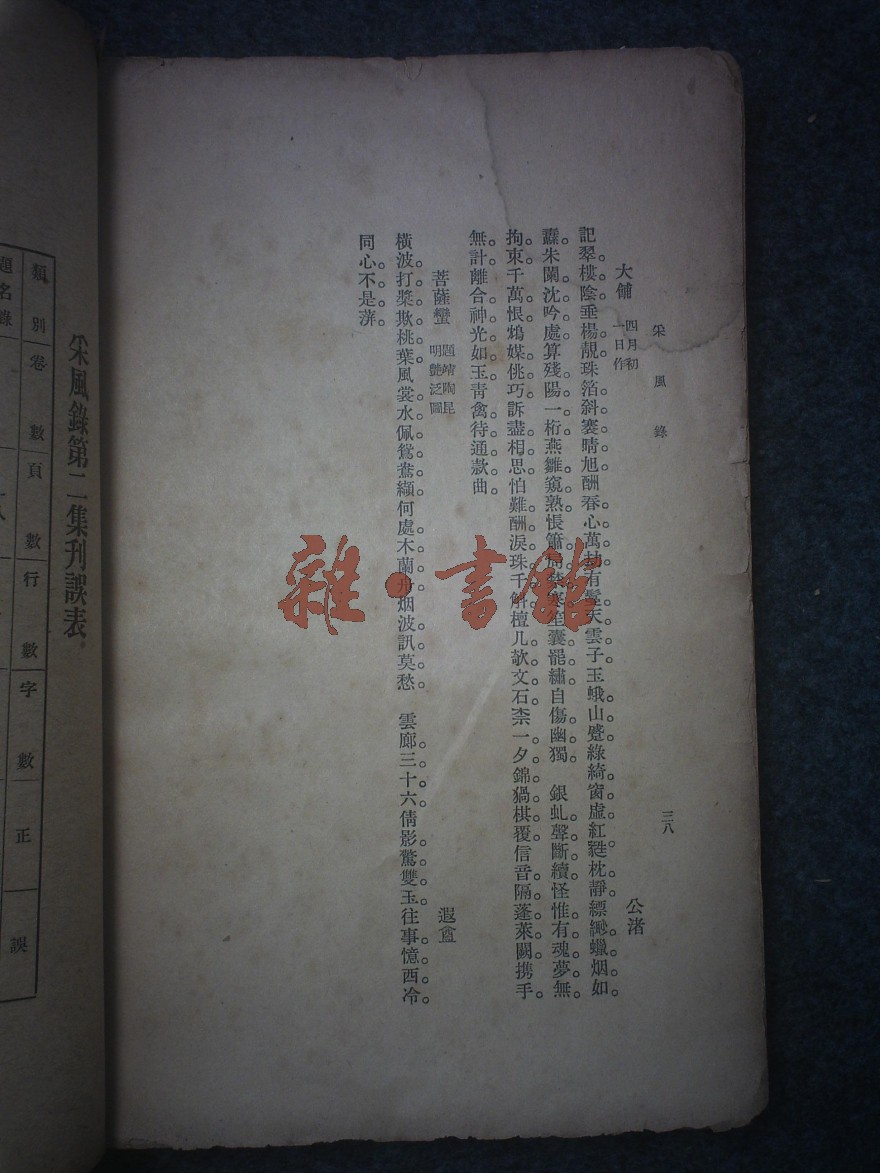 采風錄
三八
大酺 四月初一日作
公渚
記翠樓陰垂楊靚珠箔斜褰晴旭酬春心萬劫有鬘天雲子玉蛾山蹙綠綺窗虛紅韃枕靜縹緲蠟烟如
蠹朱闌沈吟處算殘陽一桁燕雛窺熟悵簫局寒囊罷繡自傷幽獨 銀虬聲斷續怪惟有魂夢無
拘束千萬恨鴆媒佻巧訴盡相思怕難酬淚珠千斛檀几欹文石柰一夕錦猧棋覆信音隔蓬萊闕携手
無計離合神光如玉青禽待通款曲
菩薩蠻 題靖陶昆明艷泛圖
遐盦
橫波打槳欺桃葉風裳水佩鴛鴦纈何處木蘭舟烟波訊莫愁 雲廊三十六倩影驚雙玉往事憶西泠
同心不是萍
雜·書館
采風錄第二集刊誤表
類別
卷數
頁數
行數
字數
正
誤
題名錄